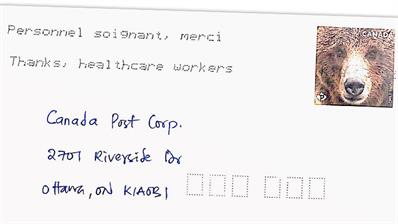 Personnel soignant, merci
Thanks, healthcare workers
CANADA
P
Canada Post Corp.
2701 Riverside Dr
Ottawa, ON K1A0B1